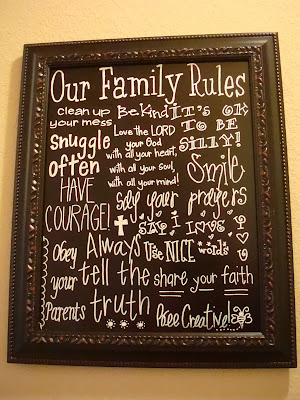 Our Family Rules
clean up
your mess
Be Kind
IT'S OK
TO BE
SILLY!
Love the LORD
your God
with all your heart,
with all your Soul,
with all your mind!
Snuggle
often
Smile
HAVE
COURAGE!
Say your prayers
SAY, I LOVE
Obey
your
Parents
Always
tell the
truth
Use NICE words
share your faith
Bee Creative!